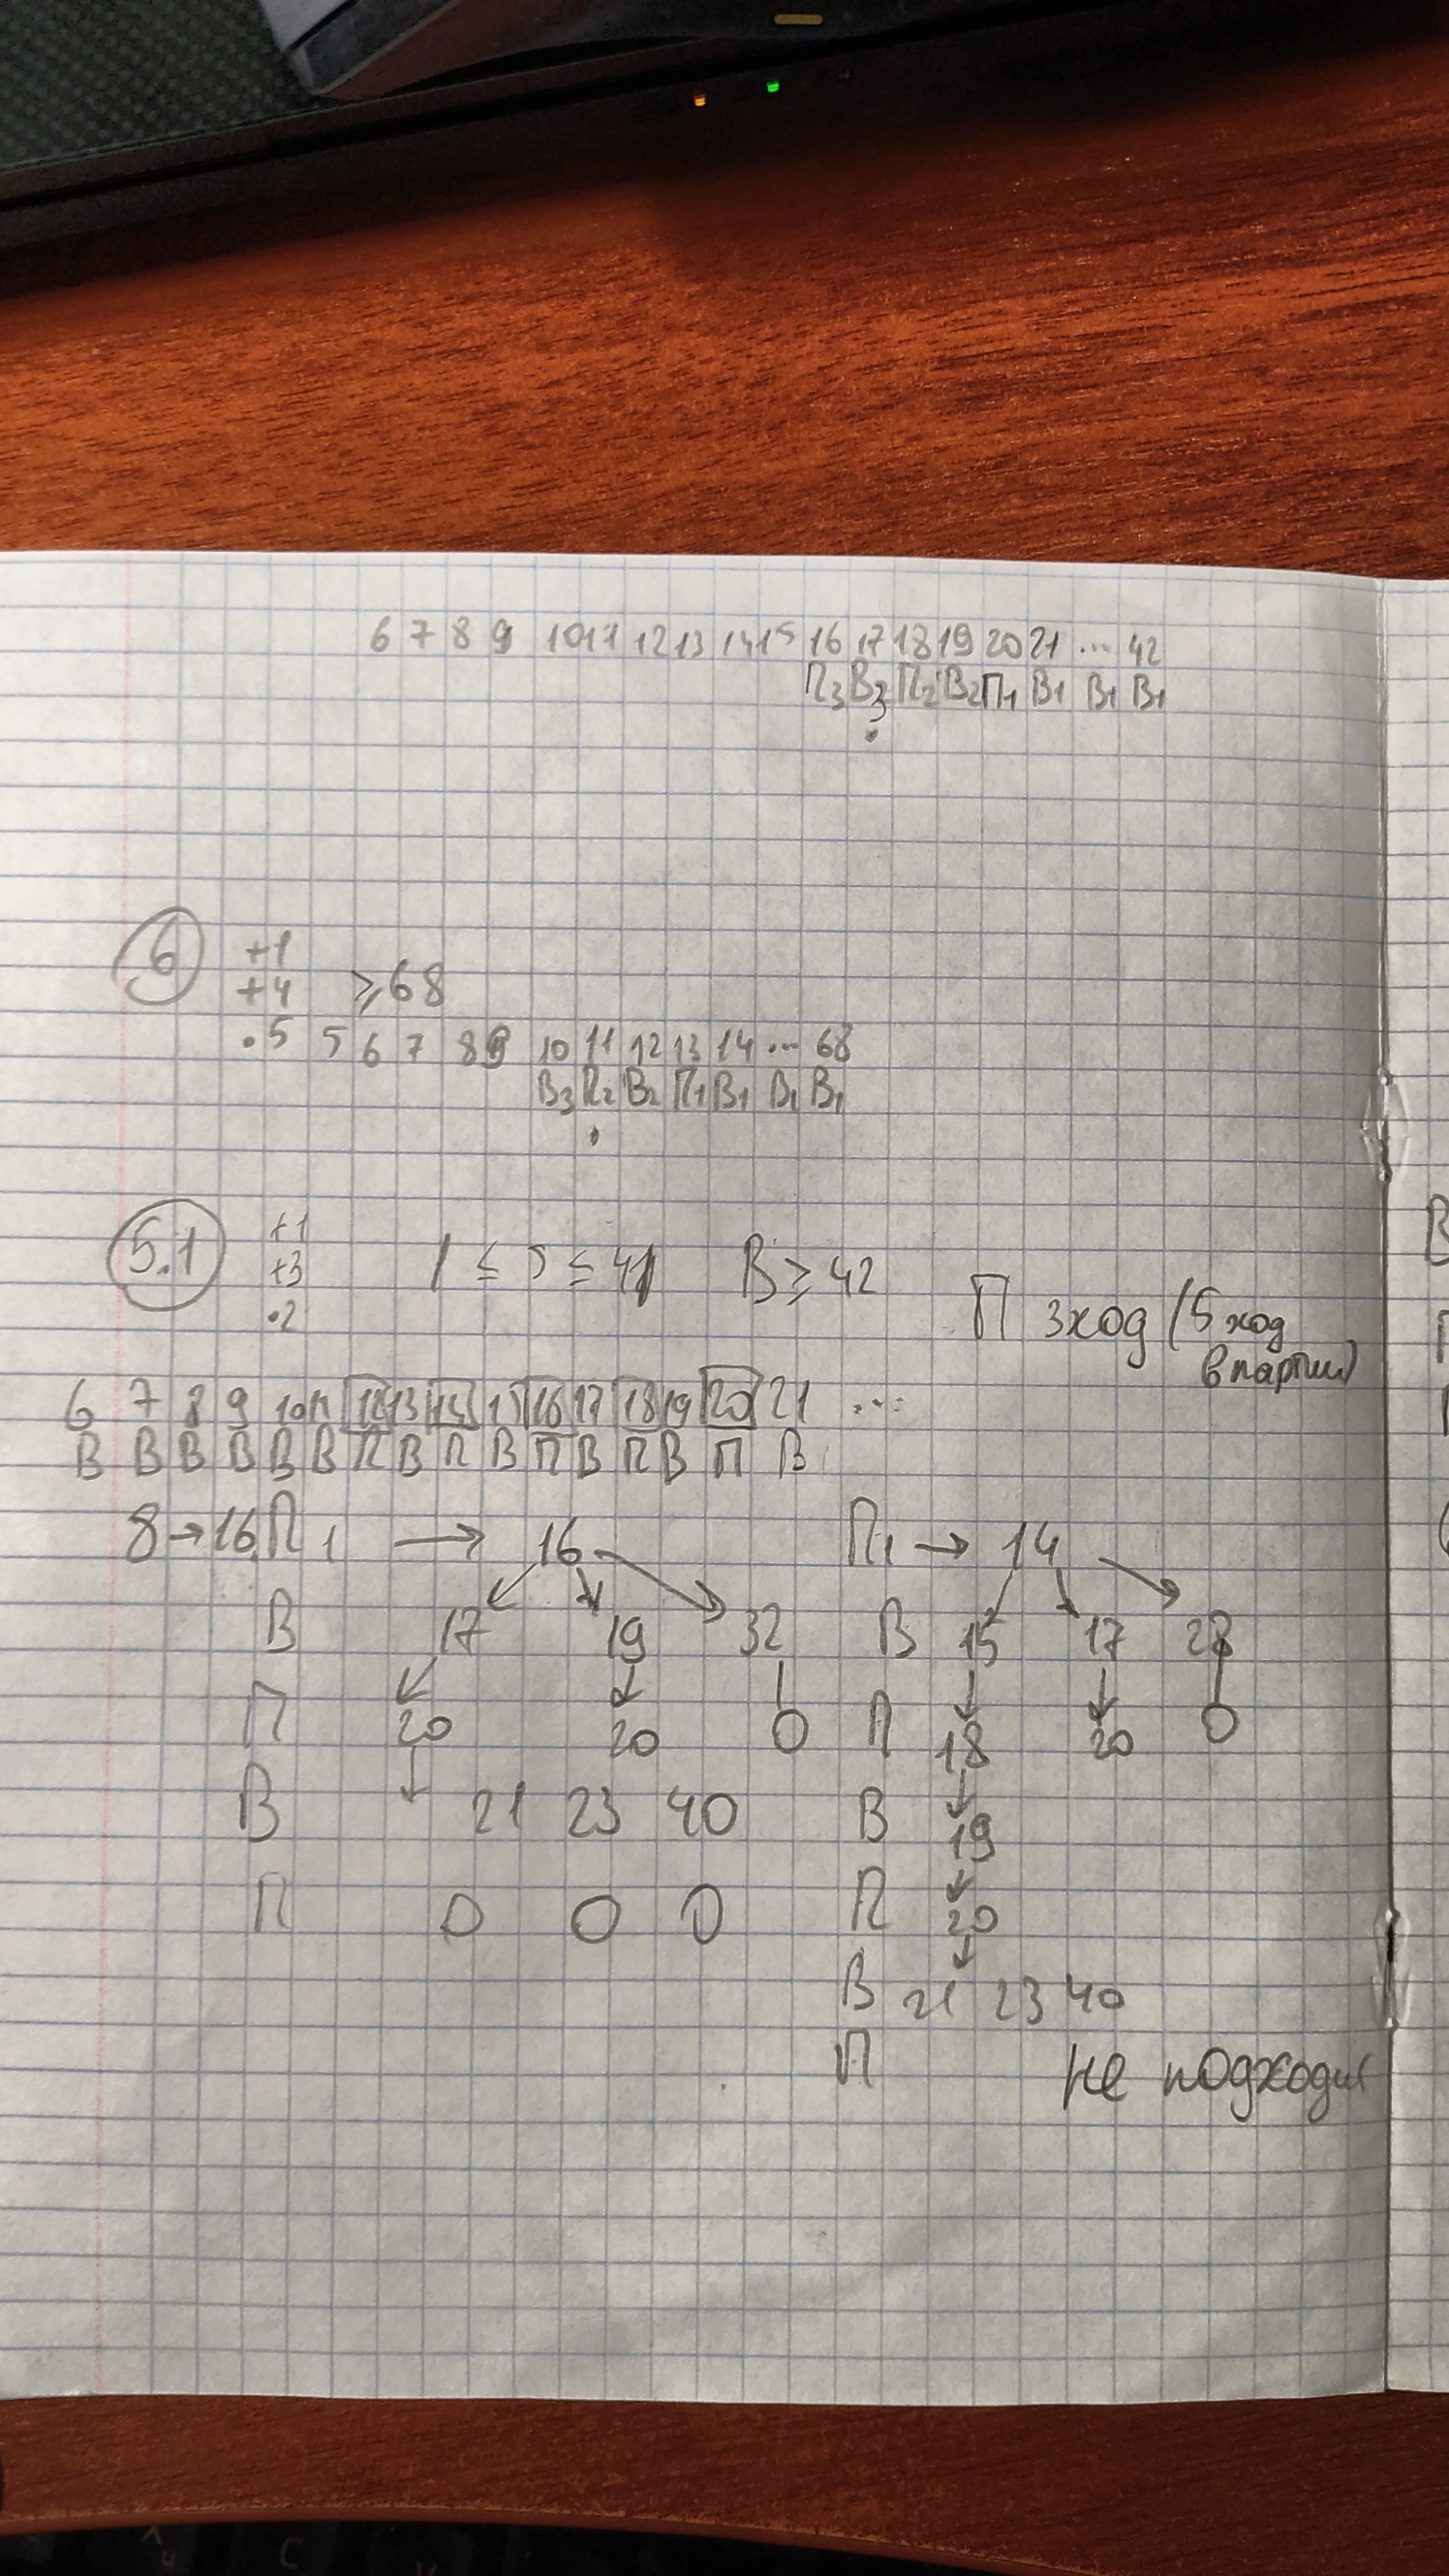 6 7 8 9 10 11 12 13 14 15 16 17 18 19 20 21 ... 42
П3 В3 П2 В2 П1 В1 В1 В1
6 +1
+4 ≥68
·5 5 6 7 8 9 10 11 12 13 14 ... 68
В3 П2 В2 П1 В1 В1 В1
5.1 +1
+3 1 ≤ S ≤ 41 В ≥ 42
·2 П 3 ход (5 ход
в партии)
6 7 8 9 10 11 12 13 14 15 16 17 18 19 20 21 ...
В В В В В В П В П В П В П В П В
8→16 П1 → 16 П1 → 14
В 17 19 32 В 15 17 28
П 20 20 0 П 18 20 0
В 21 23 40 В 19
П 0 0 0 П 20
В 21 23 40
П не подходит